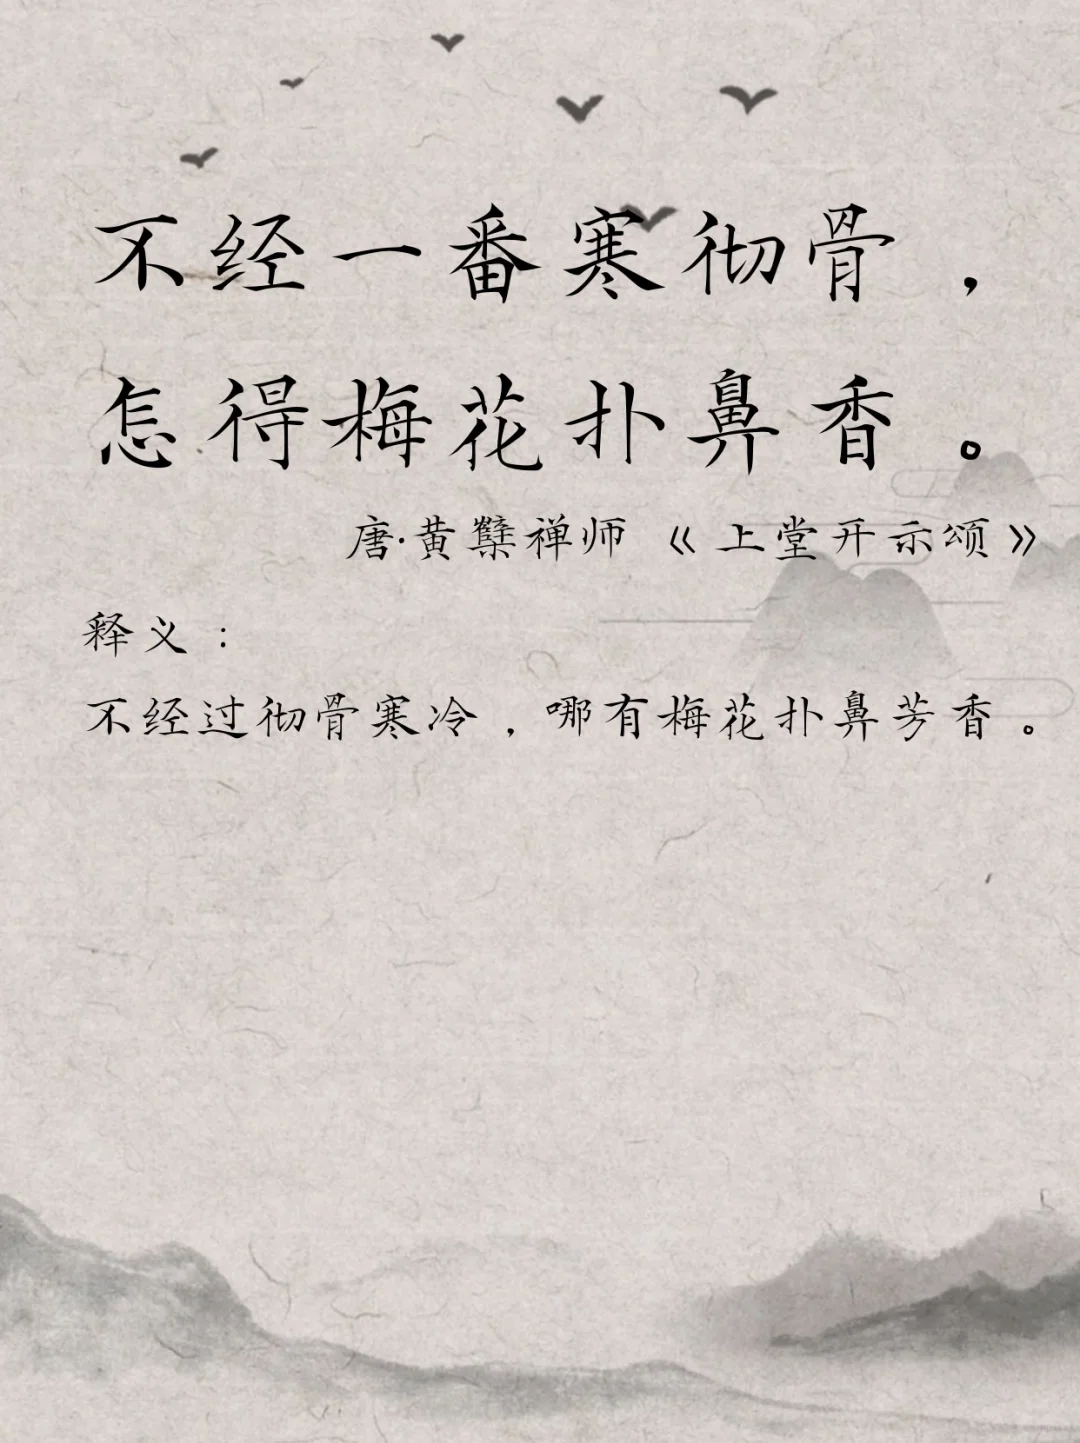 不经一番寒彻骨，
怎得梅花扑鼻香。
唐·黄檗禅师《上堂开示颂》
释义：
不经过彻骨寒冷，哪有梅花扑鼻芳香。